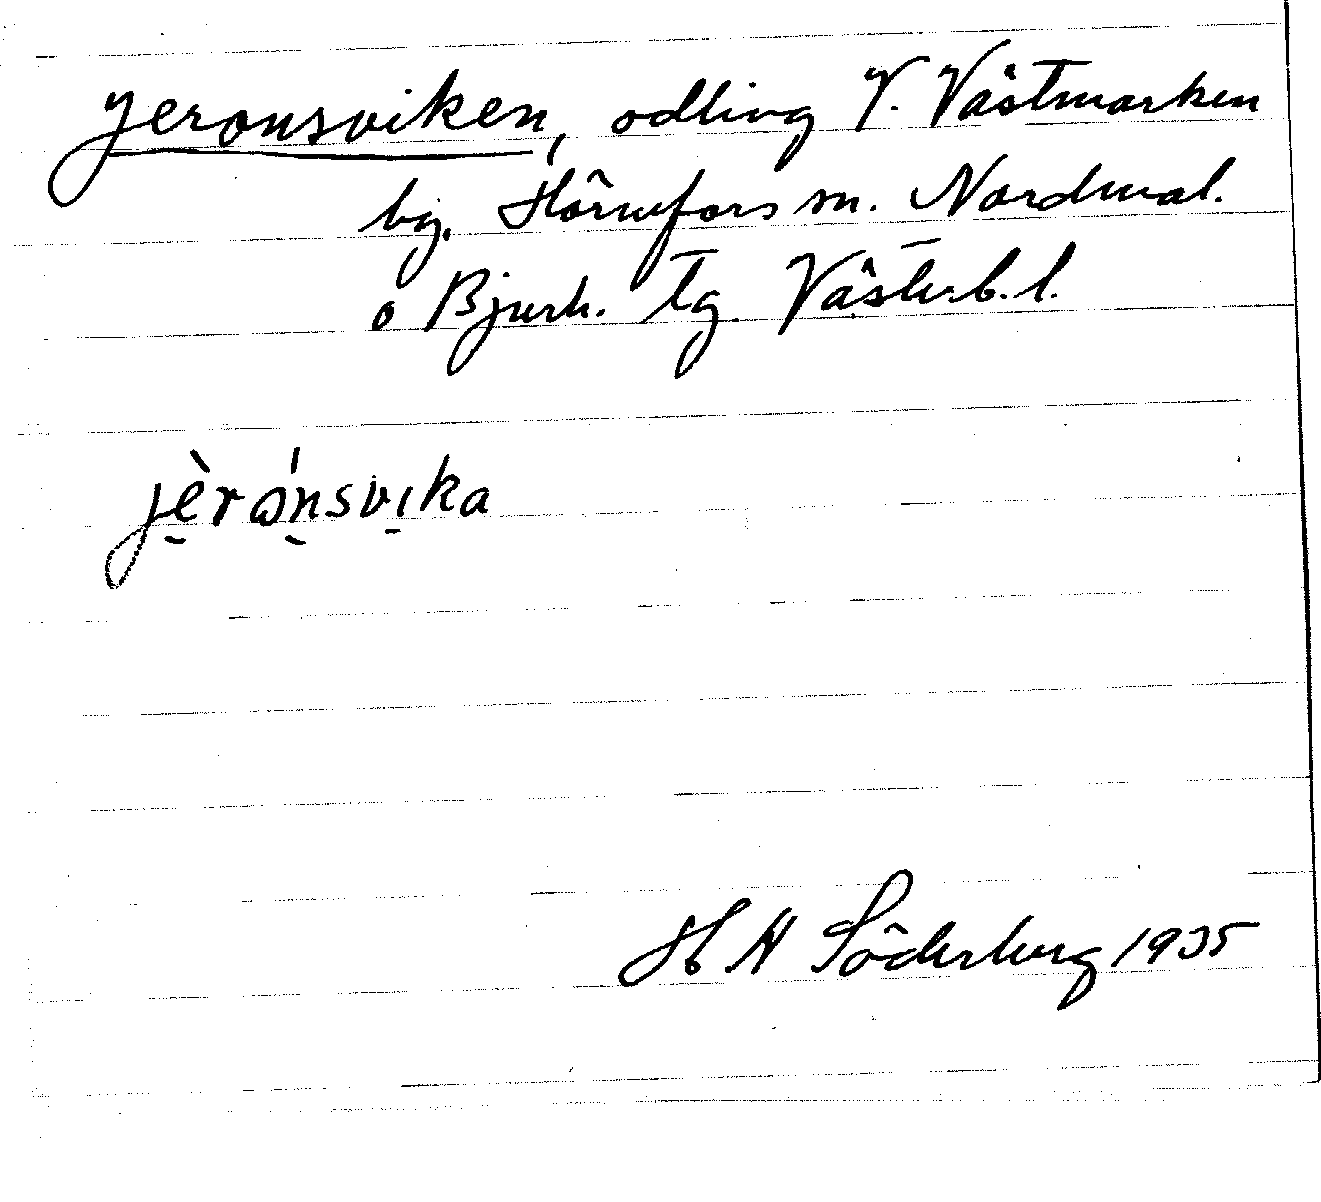 Jeronsviken, odling V. Västmarken
by, Hörnefors sn. Nordmal.
o Bjurh. tg. Västerb. l.
jèrånsvika
H A Söderberg 1935